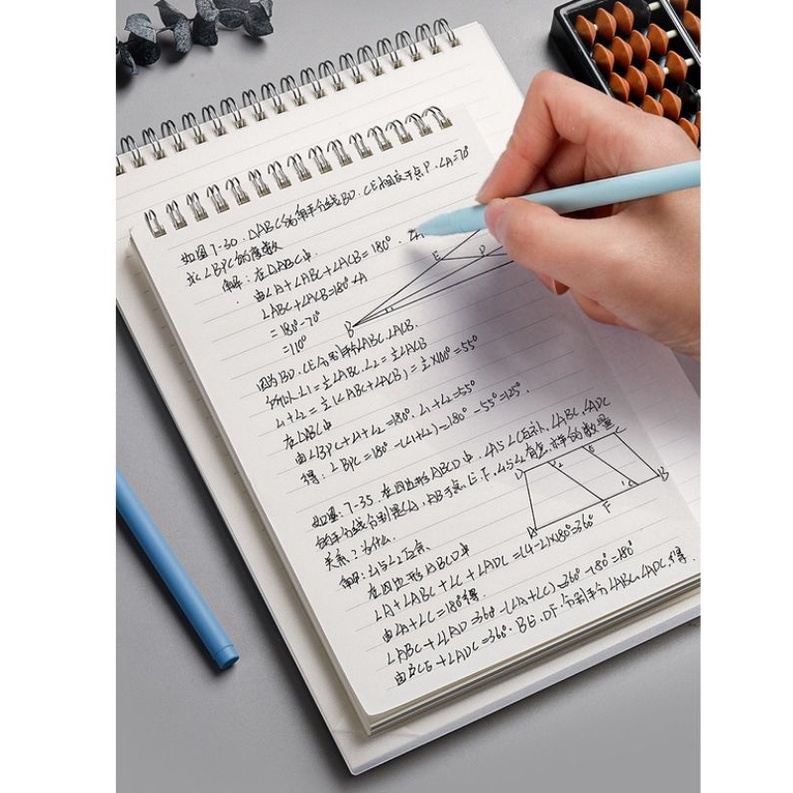 如图7-30.△ABC的角平分线BD.CE相交于点P.∠A=70°
求∠BPC的度数
解:在△ABC中
由∠A+∠ABC+∠ACB=180°.
∠ABC+∠ACB=180°-∠A
=180°-70°
=110°
E
P
B
因为BD.CE分别平分∠ABC.∠ACB.
所以∠1=½∠ABC.∠2=½∠ACB
∠1+∠2=½(∠ABC+∠ACB)=½×100°=55°
在△ABC中
由∠BPC+∠1+∠2=180°.∠1+∠2=55°
得:∠BPC=180°-(∠1+∠2)=180°-55°=125°.
如图:7-35.在四边形ABCD中.∠A与∠C互补.∠ABC.∠ADC
的平分线分别是CA.AB于点E.F.∠1与∠2有怎样的数量
关系?为什么
解:∠1与∠2互余
D
C
2
E
1
A
F
B
在四边形ABCD中
∠A+∠ABC+∠C+∠ADC=(4-2)×180°=360°
由∠A+∠C=180°得.
∠ABC+∠LAD=360°-(∠A+∠C)=360°-180°=180°
+∠ADC=360°.BE.DF.分别平分∠ABC.∠ADC,得.